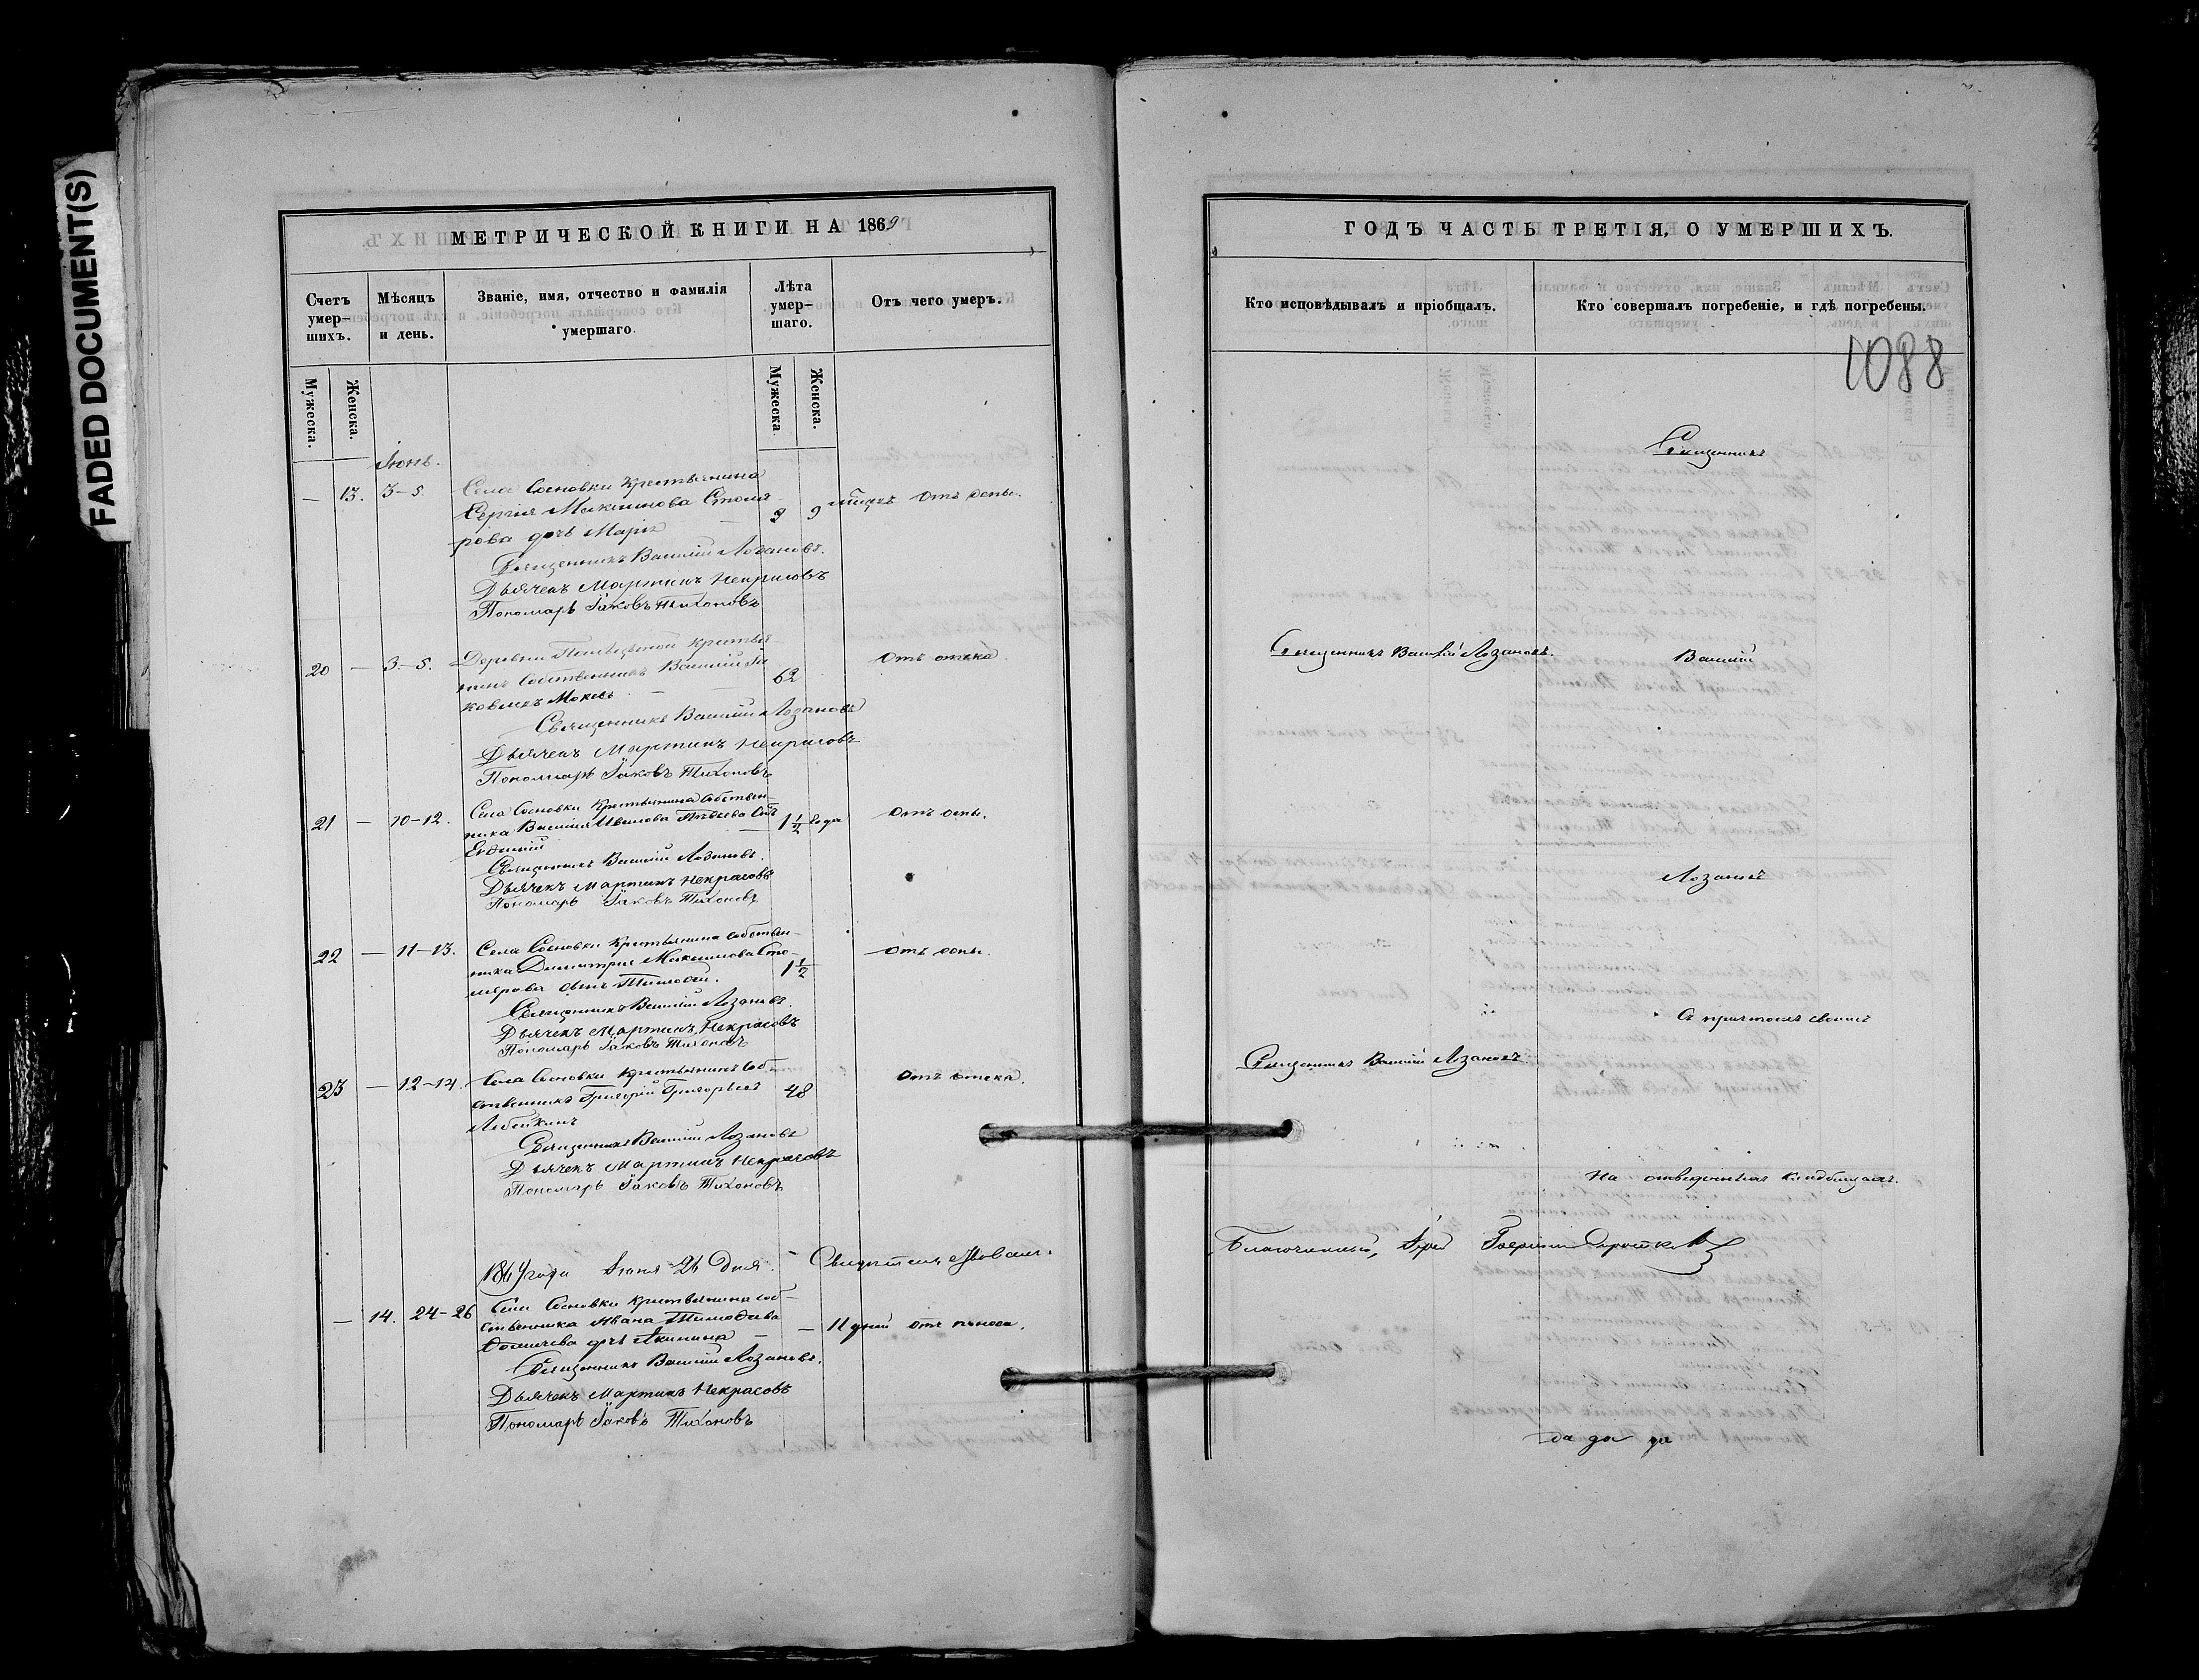 FADED DOCUMENT(S)
МЕТРИЧЕСКОЙ КНИГИ НА 1869
Счетъ умер-шихъ.
Мѣсяцъ и день.
Званіе, имя, отчество и фамилія умершаго.
Лѣта умер-шаго.
Отъ чего умеръ.
Мужеска.
Женска.
Мужеска.
Женска.
Іюнь.
— 13. 3-5. Села Сосновки Крестьянина
Сергія Максимова Столя-
рова дочь Марія 9 Отъ оспы.
Священникъ Василій Лозановъ.
Дьячекъ Мартинъ Некрасовъ
Пономарь Іаковъ Тихоновъ
20 — 3-5. Деревни крестья-
нинъ Собственникъ Василій
62 Отъ отека.
Священникъ Василій Лозановъ
Дьячекъ Мартинъ Некрасовъ
Пономарь Іаковъ Тихоновъ
21 — 10-12. Села Сосновки Крестьянина собствен-
ника Василія Иванова сынъ 1½ года Отъ оспы.
Евдокій
Священникъ Василій Лозановъ.
Дьячекъ Мартинъ Некрасовъ
Пономарь Іаковъ Тихоновъ
22 — 11-13. Села Сосновки Крестьянина собствен-
ника Димитрія Максимова Сто-
лярова сынъ Тимофей. 1½ Отъ оспы.
Священникъ Василій Лозановъ.
Дьячекъ Мартинъ Некрасовъ
Пономарь Іаковъ Тихоновъ
23 — 12-14. Села Сосновки Крестьянинъ соб-
ственникъ Григорій Григорьевъ 48 Отъ отека.
Священникъ Василій Лозановъ
Дьячекъ Мартинъ Некрасовъ
Пономарь Іаковъ Тихоновъ
1869 года Іюня 26 Дня.
— 14. 24-26 Села Сосновки Крестьянина соб-
ственника Ивана Тимофеева
дочь Акилина — 11 дней отъ поноса.
Священникъ Василій Лозановъ.
Дьячекъ Мартинъ Некрасовъ
Пономарь Іаковъ Тихоновъ
ГОДЪ ЧАСТЬ ТРЕТІЯ, О УМЕРШИХЪ.
Кто исповѣдывалъ и пріобщалъ.
Кто совершалъ погребеніе, и гдѣ погребены.
1088
Священникъ
Священникъ Василій Лозановъ.
Василій
Лозановъ
Съ причтомъ своимъ
Священникъ Василій Лозановъ
На отведенномъ кладбищѣ.
Благочинный, Іерей